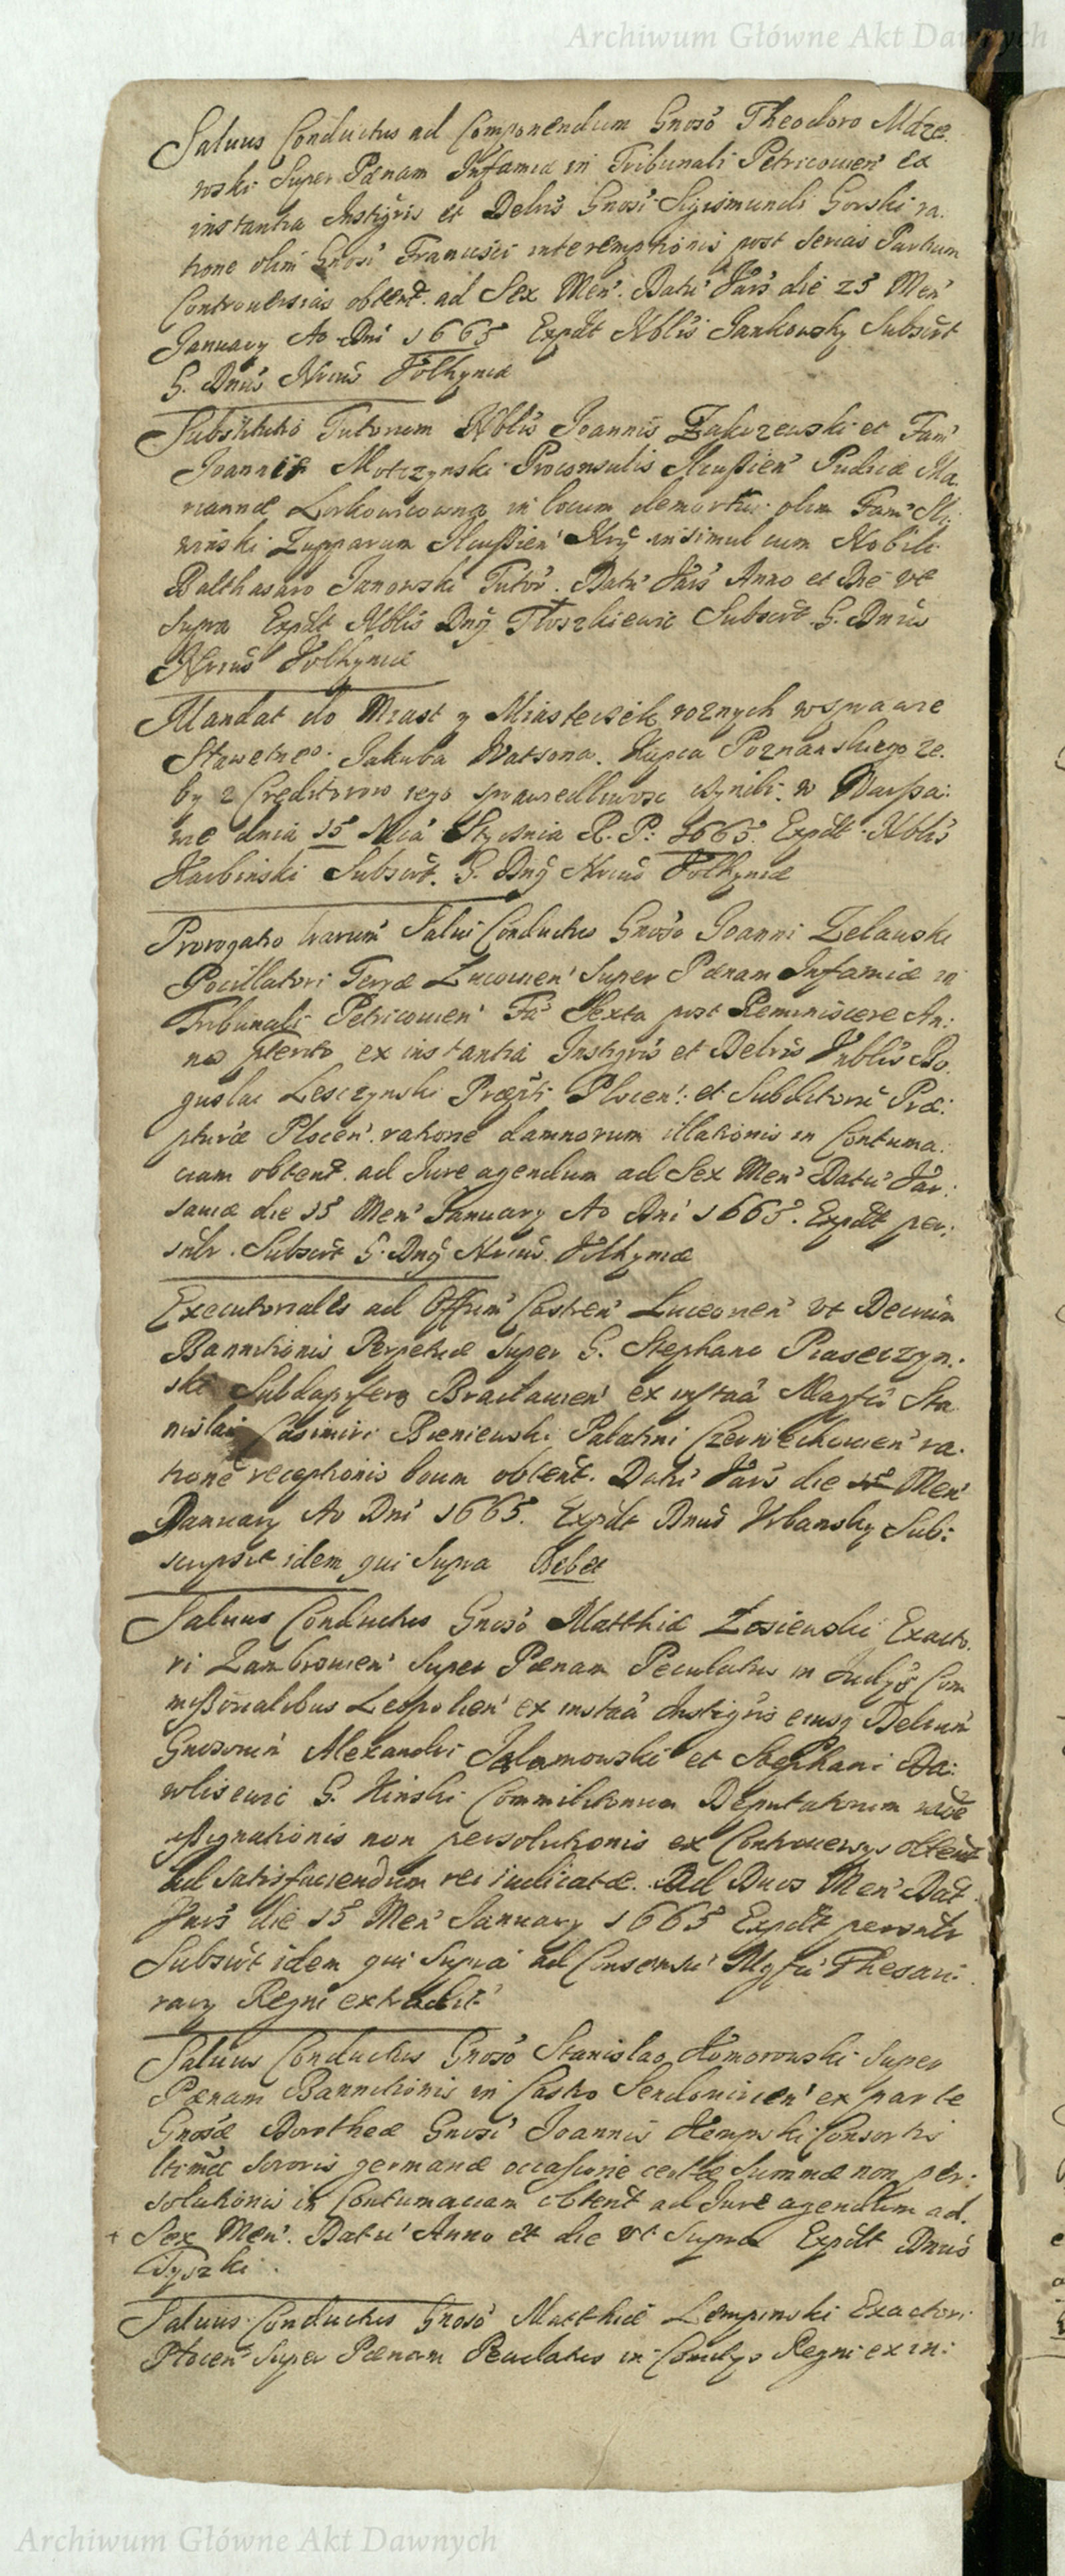 Archiwum Główne Akt Dawnych
Saluus Conductus ad Componendum Gnoso Theodoro Mdze
wski Super Pœnam Infamiæ in Tribunali Petricouien' ex
instantia Instigris et Delris Gnosi Sigismundi Gorski ra:
tione olim Gnosi Francisci interemptionis post Serias Partium
Controuersias obtent. ad Sex Men'. Datu' Vars die 25 Men'
January Ao Dni 1665 Expdt Nblis Jankowsky Subscrt
G. Dnus Nrius Volhyniæ
Substitutio Tutorum Nblis Joannis Zakrzewski et Fam'
Joannis Motczynski Proconsulis Ilcussien' Pudicæ Ma.
riannæ Lerkowicowna in locum demortui olim Fam'
ninski Zupparum Ilcussien' insimul cum Nobili
Balthasaro Janowski Tutor. Datu' Vars Anno et Die vt
Supra Expdt Nblis Dny Ploszkiewic Subscrt G. Dnus
Nrius Volhyniæ
Mandat do Miast y Miasteczek roznych wsprawie
Slawetneo Jakuba Watsona Kupca Poznanskiego ze.
by z Creditorow iego sprawiedliwosc czynili. w Warsza:
wie dnia 15 Mca Stycznia R. P. 1665. Expdt Nblis
Karbinski Subscrt. G. Dny Nrius Volhyniæ
Prorogatio harum Salui Conductus Gnoso Joanni Zelawski
Pocillatori Terræ Lucouien' Super Pœnam Infamiæ in
Tribunali Petricouien' Fa Sexta post Reminiscere An:
no pterito ex instantia Instigris et Delris Vnblis Bo
guslai Lesczynski Præpti Plocen' et Subditoru Præ:
pturæ Plocen' ratione damnorum illationis in Contuma:
ciam obtent. ad Jure agendum ad Sex Men' Datu' Var:
sauiæ die 15 Men' January Ao Dni 1665. Expdt per:
sulr. Subscrt G. Dny Nrius Volhyniæ
Executoriales ad Offium Castren' Luceorien' vt Decium
Bannitionis Perpetuæ Super G. Stephano Piaseczyn:
ski Subdapifero Braclauien' ex instaa Magfci Sta
nislai Casimiri Bieniewski Palatini Czerniechouien' ra:
tione receptionis boum obtent. Datu' Vars die 15 Men'
January Ao Dni 1665. Expdt Dnus Vrbansky Sub:
scripsit idem qui Supra Debet
Saluus Conductus Gnoso Matthiæ Zosiewski Exacto.
ri Zambrouien' Super Pœnam Peculatus in Judys Com
missorialibus Leopolien' ex instaa Instigris eiusq Delrum
Gnosorum Alexandri Jalamowski et Stephani Da:
wlisewic G. Kinski Commilitonum Deputatorum rae
assignationis non persolutionis ex Controuersys obtent
ad Satisfaciendum rei iudicatæ. Ad Duos Men' Dat
Vars die 15 Men' January 1665 Expdt persulr
Subscrt idem qui Supra ad Consensu' Mgfci Thesau:
rary Regni extradit
Saluus Conductus Gnoso Stanislao Komorowski Super
Pœnam Bannitionis in Castro Sendomirien' ex parte
Gnosæ Dorotheæ Gnosi Joannis Kempski Consortis
ltimæ Sororis germanæ occasione certæ Summæ non per:
solutionis in Contumaciam obtent ad Jure agendum ad.
+ Sex Men'. Datu' Anno et die vt Supra Expdt Dnus
Tyszki
Saluus Conductus Gnoso Matthiæ Lempinski Exactori
Plocen' Super Pœnam Peculatus in Comitys Regni ex in:
Archiwum Główne Akt Dawnych